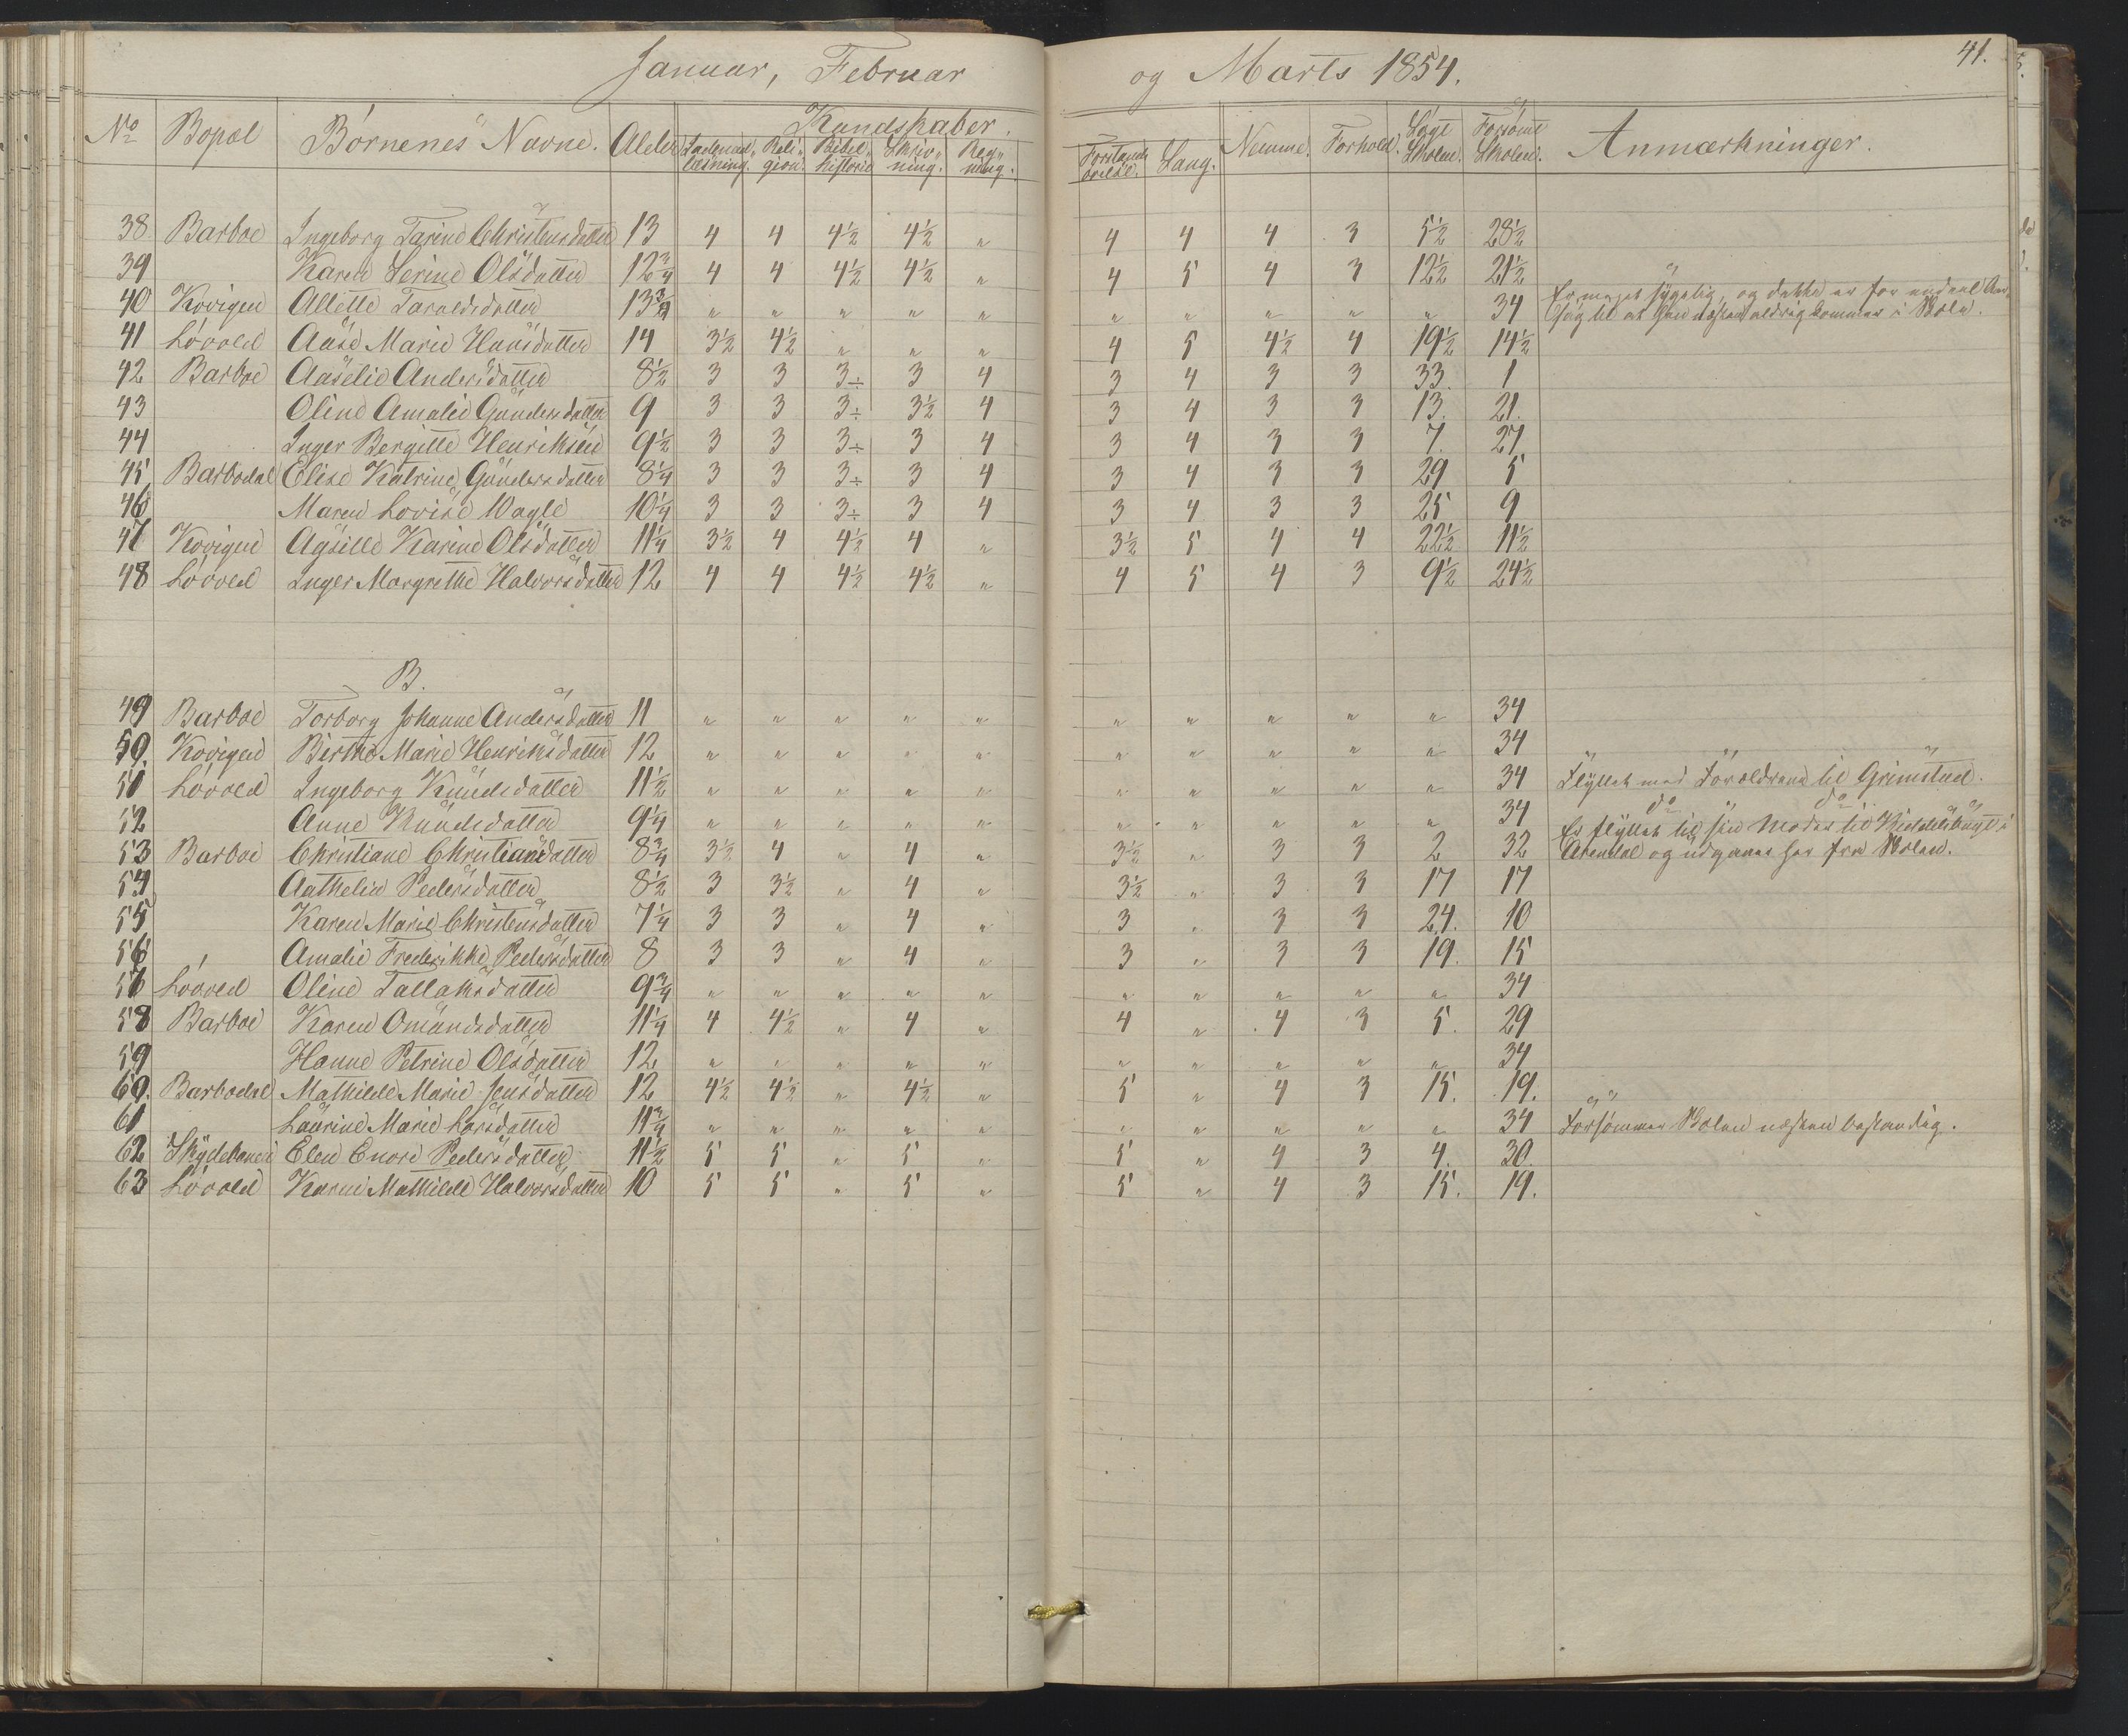 Januar, Februar og Marts 1854. 41.
No Bopæl Börnenes Navne. Alder Kundskaber. Nemme. Forhold. Sögt Skolen. Forsömt Skolen. Anmærkninger.
Indenadlæsning. Religion. Bibelhistorie Skrivning. Regning. Forstandsövelse. Sang.
38. Barboe Ingeborg Tarine Christensdatter 13 4 4 4½ 4½ " 4 4 4 3 5½ 28½
39 Karen Serine Olsdatter 12¾ 4 4 4½ 4½ " 4 5 4 3 12½ 21½
40 Kovigen Allette Taraldsdatter 13¾ " " " " " " " " " " 34 Er meget sygelig, og dette er for endeel Aarsag til at hun næsten aldrig kommer i Skole.
41 Lövold Aase Marie Hansdatter 14 3½ 4½ " " " 4 5 4½ 4 19½ 14½
42 Barboe Aaselie Andersdatter 8½ 3 3 3÷ 3 4 3 4 3 3 33. 1
43 Oline Amalie Gundersdatter 9 3 3 3÷ 3½ 4 3 4 3 3 13. 21.
44 Inger Bergitte Henriksen 9½ 3 3 3÷ 3 4 3 4 3 3 7. 27.
45 Barbodal Elise Katrine Gundersdatter 8¼ 3 3 3÷ 3 4 3 4 3 3 29 5
46 Maren Lovise Wagle 10¼ 3 3 3÷ 3 4 3 4 3 3 25 9
47 Kovigen Agsille Karine Olsdatter 11¼ 3½ 4 4½ 4 " 3½ 5 4 4 22½ 11½
48 Lövold Inger Margrethe Halvorsdatter 12 4 4 4½ 4½ " 4 5 4 3 9½ 24½
B.
49 Barboe Torborg Johanne Andersdatter 11 " " " " " " " " " " 34
50. Kovigen Birthe Marie Henriksdatter 12 " " " " " " " " " " 34
51 Lövold Ingeborg Knudsdatter 11½ " " " " " " " " " " 34 Flyttet med Forældrene til Grimstad.
52 Anne Knudsdatter 9¼ " " " " " " " " " " 34 do do
53 Barboe Christiane Christiansdatter 8¾ 3½ 4 " 4 " 3½ " 3 3 2 32 Er flyttet til sin Moder til i Arendal og udgaaer her fra Skolen.
54 Aathelie Pedersdatter 8½ 3 3½ " 4 " 3½ " 3 3 17 17
55 Karen Marie Christensdatter 7¼ 3 3 " 4 " 3 " 3 3 24. 10
56 Amalie Frederikke Pedersdatter 8 3 3 " 4 " 3 " 3 3 19. 15
57 Lövold Oline Tallaksdatter 9¾ " " " " " " " " " " 34
58 Barboe Karen Omundsdatter 11¼ 4 4½ " 4 " 4 " 4 3 5. 29
59 Hanne Petrine Olsdatter 12 " " " " " " " " " " 34
60. Barbodal Mathilde Marie Jensdatter 12 4½ 4½ " 4½ " 5 " 4 3 15. 19.
61 Laurine Marie Larsdatter 11¾ " " " " " " " " " " 34 Forsömmer Skolen næsten bestandig.
62 Skydebanen Elen Enore Pedersdatter 11½ 5 5 " 5 " 5 " 4 3 4. 30.
63 Lövold Karen Mathilde Halvorsdatter 10 5 5 " 5 " 5 " 4 3 15. 19.